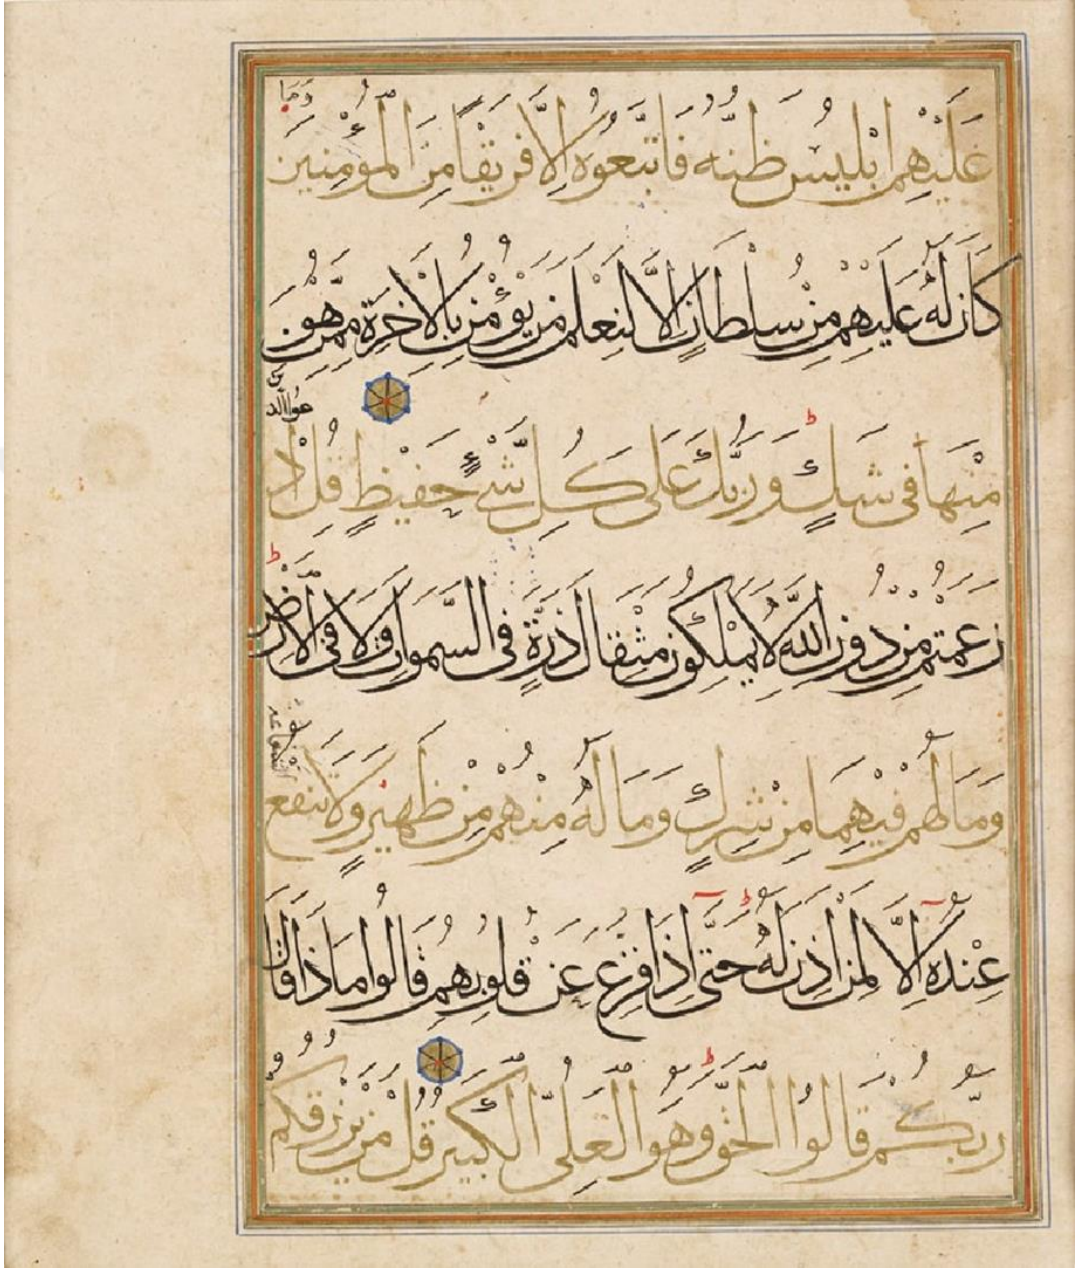 عَلَيْهِمْ اِبْلِيسُ ظَنَّهُ فَاتَّبَعُوهُ اِلَّا فَرِيقًا مِنَ الْمُؤْمِنِينَ وَمَا
كَانَ لَهُ عَلَيْهِمْ مِنْ سُلْطَانٍ اِلَّا لِنَعْلَمَ مَنْ يُؤْمِنُ بِالْاٰخِرَةِ مِمَّنْ هُوَ
مِنْهَا فِى شَكٍّ وَرَبُّكَ عَلَى كُلِّ شَىْءٍ حَفِيظٍ قُلِ ادْعُوا الَّذِينَ
زَعَمْتُمْ مِنْ دُونِ اللّٰهِ لَا يَمْلِكُونَ مِثْقَالَ ذَرَّةٍ فِى السَّمٰوَاتِ وَلَا فِى الْاَرْضِ
وَمَا لَهُمْ فِيهِمَا مِنْ شِرْكٍ وَمَا لَهُ مِنْهُمْ مِنْ ظَهِيرٍ وَلَا تَنْفَعُ الشَّفَاعَةُ
عِنْدَهُ اِلَّا لِمَنْ اَذِنَ لَهُ حَتّٰى اِذَا فُزِّعَ عَنْ قُلُوبِهِمْ قَالُوا مَاذَا قَالَ
رَبُّكُمْ قَالُوا الْحَقَّ وَهُوَ الْعَلِىُّ الْكَبِيرُ قُلْ مَنْ يَرْزُقُكُمْ